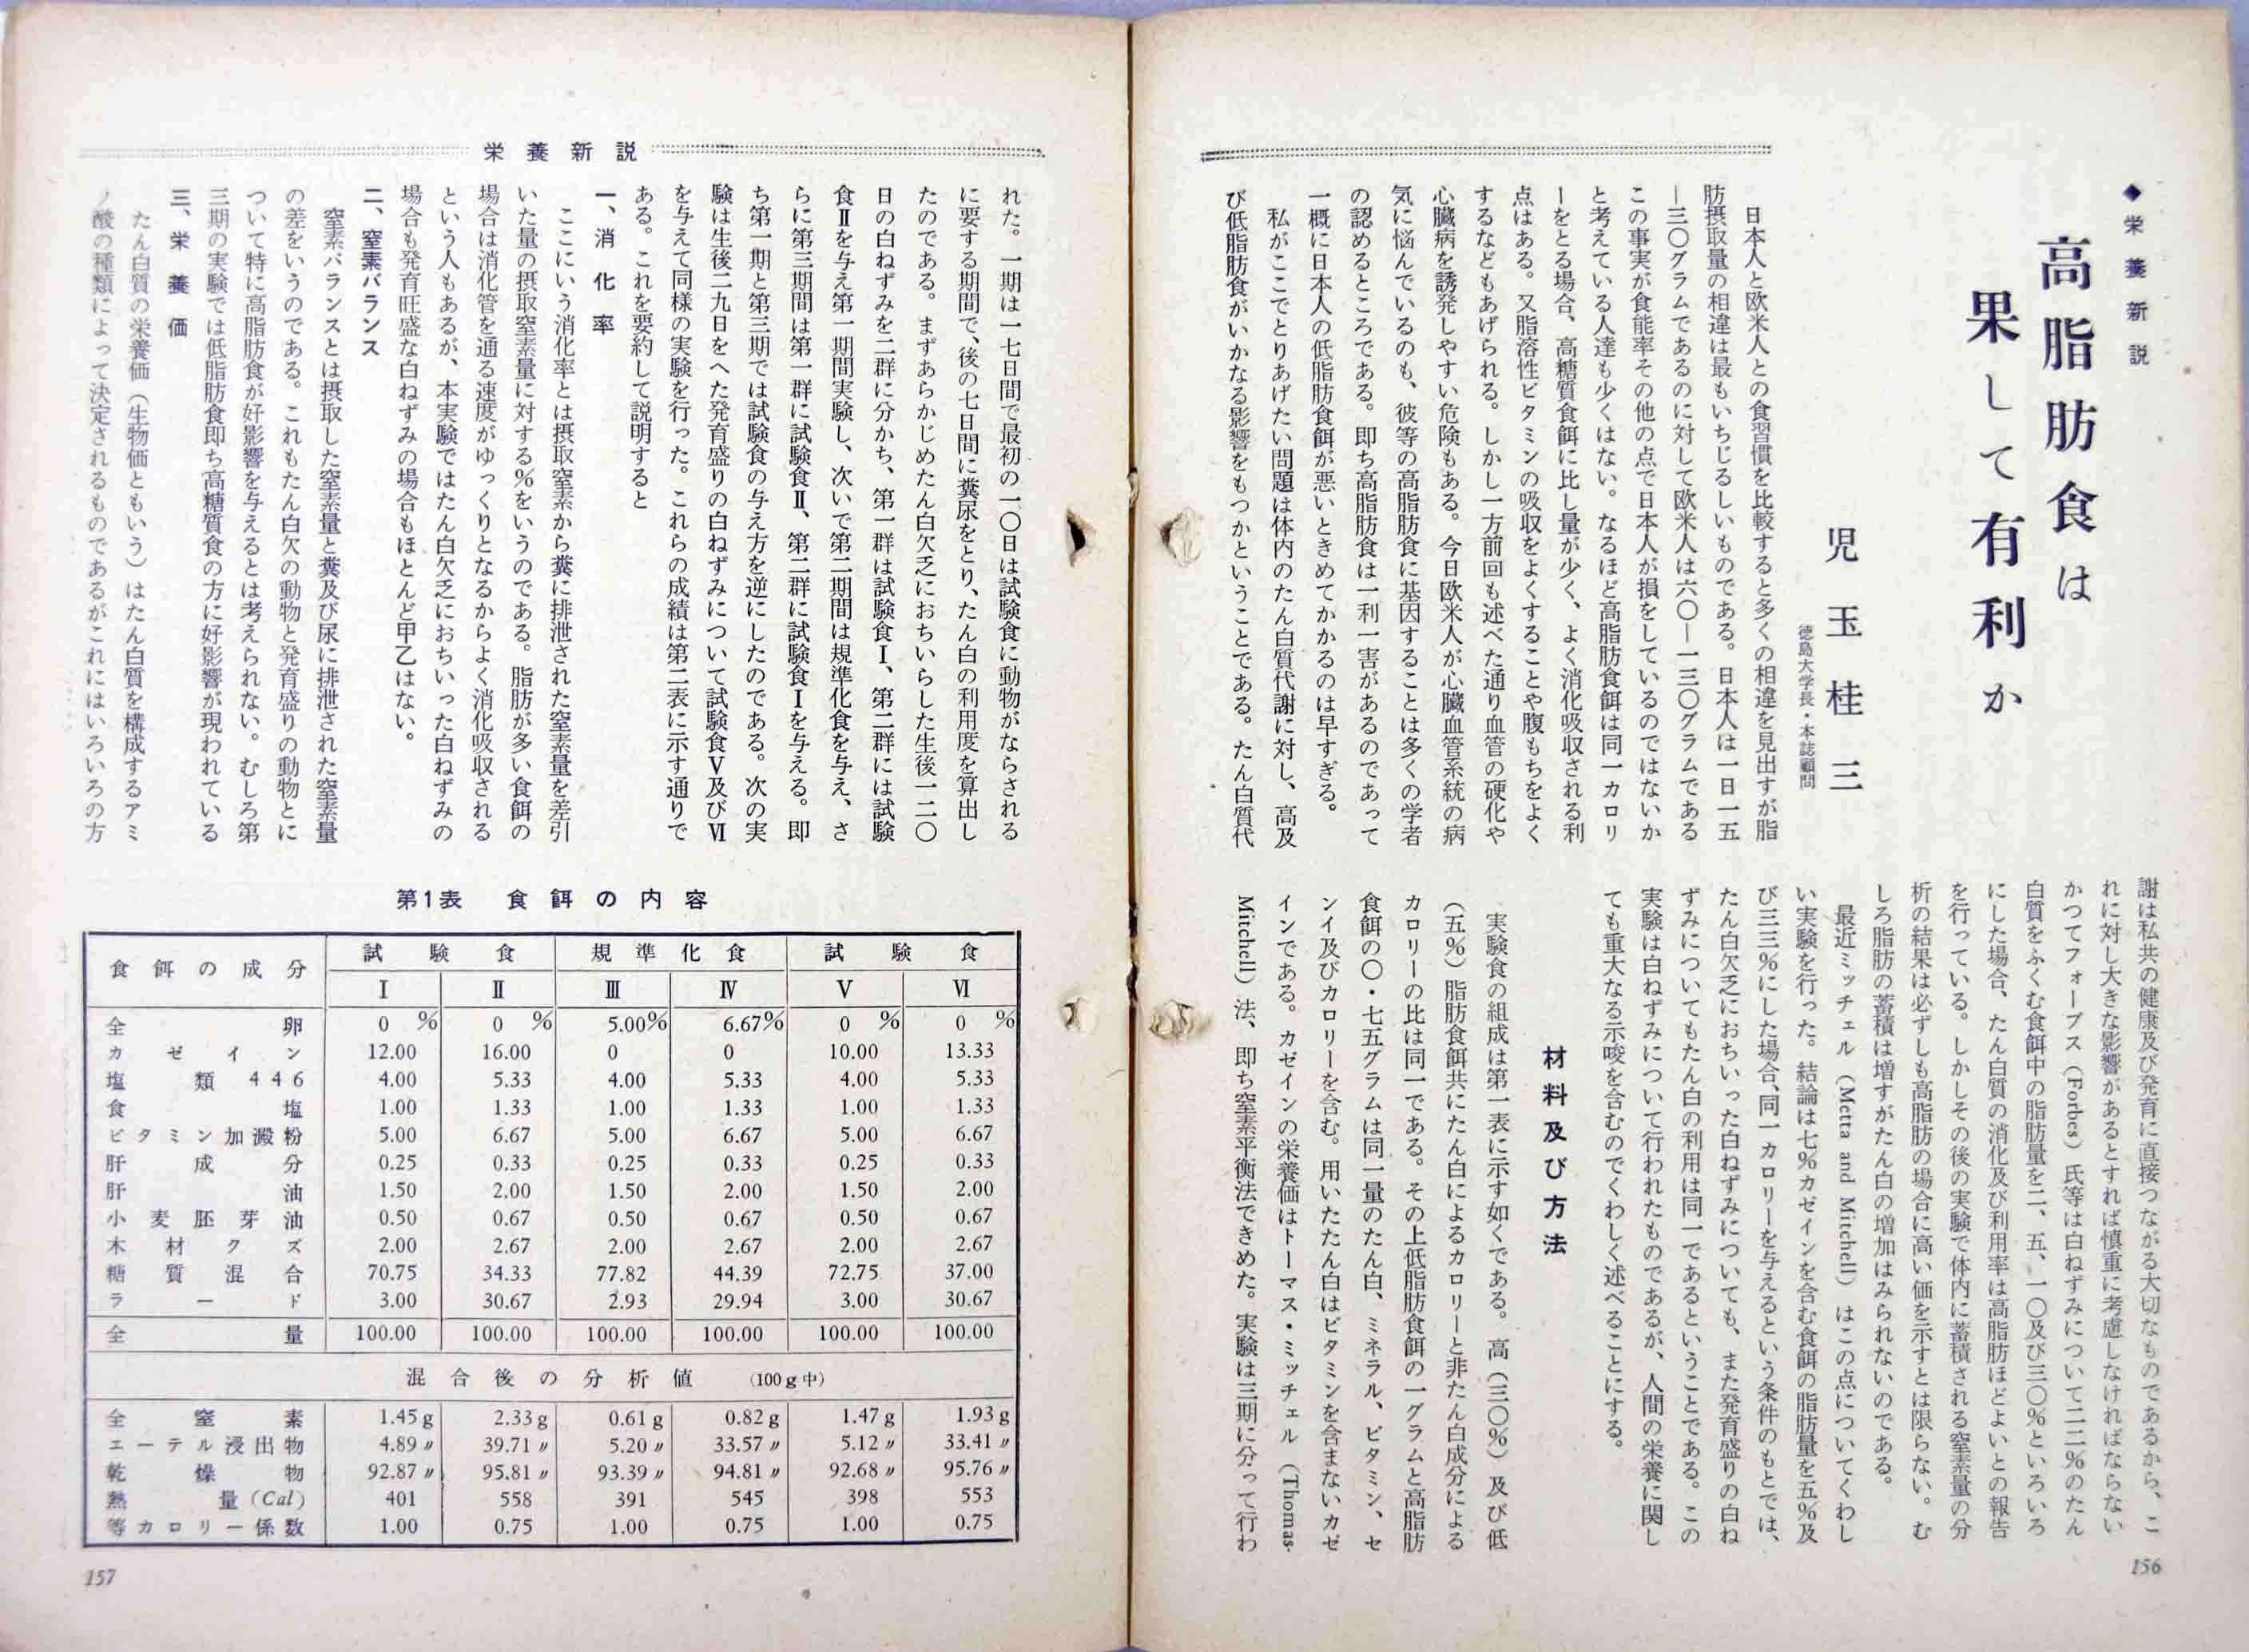 ◆栄養新説
高脂肪食は
果して有利か
児玉桂三
徳島大学長・本誌顧問
日本人と欧米人との食習慣を比較すると多くの相違を見出すが脂
肪摂取量の相違は最もいちじるしいものである。日本人は一日一五
―三〇グラムであるのに対して欧米人は六〇―一三〇グラムである
この事実が食能率その他の点で日本人が損をしているのではないか
と考えている人達も少くはない。なるほど高脂肪食餌は同一カロリ
ーをとる場合、高糖質食餌に比し量が少く、よく消化吸収される利
点はある。又脂溶性ビタミンの吸収をよくすることや腹もちをよく
するなどもあげられる。しかし一方前回も述べた通り血管の硬化や
心臓病を誘発しやすい危険もある。今日欧米人が心臓血管系統の病
気に悩んでいるのも、彼等の高脂肪食に基因することは多くの学者
の認めるところである。即ち高脂肪食は一利一害があるのであって
一概に日本人の低脂肪食餌が悪いときめてかかるのは早すぎる。
私がここでとりあげたい問題は体内のたん白質代謝に対し、高及
び低脂肪食がいかなる影響をもつかということである。たん白質代
謝は私共の健康及び発育に直接つながる大切なものであるから、こ
れに対し大きな影響があるとすれば慎重に考慮しなければならない
かつてフォーブス（Forbes）氏等は白ねずみについて二二％のたん
白質をふくむ食餌中の脂肪量を二、五、一〇及び三〇％といろいろ
にした場合、たん白質の消化及び利用率は高脂肪ほどよいとの報告
を行っている。しかしその後の実験で体内に蓄積される窒素量の分
析の結果は必ずしも高脂肪の場合に高い価を示すとは限らない。む
しろ脂肪の蓄積は増すがたん白の増加はみられないのである。
最近ミッチェル（Metta and Mitchell）はこの点についてくわし
い実験を行った。結論は七％カゼインを含む食餌の脂肪量を五％及
び三三％にした場合、同一カロリーを与えるという条件のもとでは、
たん白欠乏におちいった白ねずみについても、また発育盛りの白ね
ずみについてもたん白の利用は同一であるということである。この
実験は白ねずみについて行われたものであるが、人間の栄養に関し
ても重大なる示唆を含むのでくわしく述べることにする。
材料及び方法
実験食の組成は第一表に示す如くである。高（三〇％）及び低
（五％）脂肪食餌共にたん白によるカロリーと非たん白成分による
カロリーの比は同一である。その上低脂肪食餌の一グラムと高脂肪
食餌の〇・七五グラムは同一量のたん白、ミネラル、ビタミン、セ
ンイ及びカロリーを含む。用いたたん白はビタミンを含まないカゼ
インである。カゼインの栄養価はトーマス・ミッチェル（Thomas-
Mitchell）法、即ち窒素平衡法できめた。実験は三期に分って行わ
156
栄養新説
れた。一期は一七日間で最初の一〇日は試験食に動物がならされる
に要する期間で、後の七日間に糞尿をとり、たん白の利用度を算出し
たのである。まずあらかじめたん白欠乏におちいらした生後一二〇
日の白ねずみを二群に分かち、第一群は試験食Ⅰ、第二群には試験
食Ⅱを与え第一期間実験し、次いで第二期間は規準化食を与え、さ
らに第三期間は第一群に試験食Ⅱ、第二群に試験食Ⅰを与える。即
ち第一期と第三期では試験食の与え方を逆にしたのである。次の実
験は生後二九日をへた発育盛りの白ねずみについて試験食Ⅴ及びⅥ
を与えて同様の実験を行った。これらの成績は第二表に示す通りで
ある。これを要約して説明すると
一、消化率
ここにいう消化率とは摂取窒素から糞に排泄された窒素量を差引
いた量の摂取窒素量に対する％をいうのである。脂肪が多い食餌の
場合は消化管を通る速度がゆっくりとなるからよく消化吸収される
という人もあるが、本実験ではたん白欠乏におちいった白ねずみの
場合も発育旺盛な白ねずみの場合もほとんど甲乙はない。
二、窒素バランス
窒素バランスとは摂取した窒素量と糞及び尿に排泄された窒素量
の差をいうのである。これもたん白欠の動物と発育盛りの動物とに
ついて特に高脂肪食が好影響を与えるとは考えられない。むしろ第
三期の実験では低脂肪食即ち高糖質食の方に好影響が現われている
三、栄養価
たん白質の栄養価（生物価ともいう）はたん白質を構成するアミ
ノ酸の種類によって決定されるものであるがこれにはいろいろの方
第1表 食餌の内容
食餌の成分 試験食 規準化食 試験食
Ⅰ Ⅱ Ⅲ Ⅳ Ⅴ Ⅵ
全卵 0 % 0 % 5.00% 6.67% 0 % 0 %
カゼイン 12.00 16.00 0 0 10.00 13.33
塩類446 4.00 5.33 4.00 5.33 4.00 5.33
食塩 1.00 1.33 1.00 1.33 1.00 1.33
ビタミン加澱粉 5.00 6.67 5.00 6.67 5.00 6.67
肝成分 0.25 0.33 0.25 0.33 0.25 0.33
肝油 1.50 2.00 1.50 2.00 1.50 2.00
小麦胚芽油 0.50 0.67 0.50 0.67 0.50 0.67
木材クズ 2.00 2.67 2.00 2.67 2.00 2.67
糖質混合 70.75 34.33 77.82 44.39 72.75 37.00
ラード 3.00 30.67 2.93 29.94 3.00 30.67
全量 100.00 100.00 100.00 100.00 100.00 100.00
混合後の分析値 (100g中)
全窒素 1.45g 2.33g 0.61g 0.82g 1.47g 1.93g
エーテル浸出物 4.89〃 39.71〃 5.20〃 33.57〃 5.12〃 33.41〃
乾燥物 92.87〃 95.81〃 93.39〃 94.81〃 92.68〃 95.76〃
熱量(Cal) 401 558 391 545 398 553
等カロリー係数 1.00 0.75 1.00 0.75 1.00 0.75
157